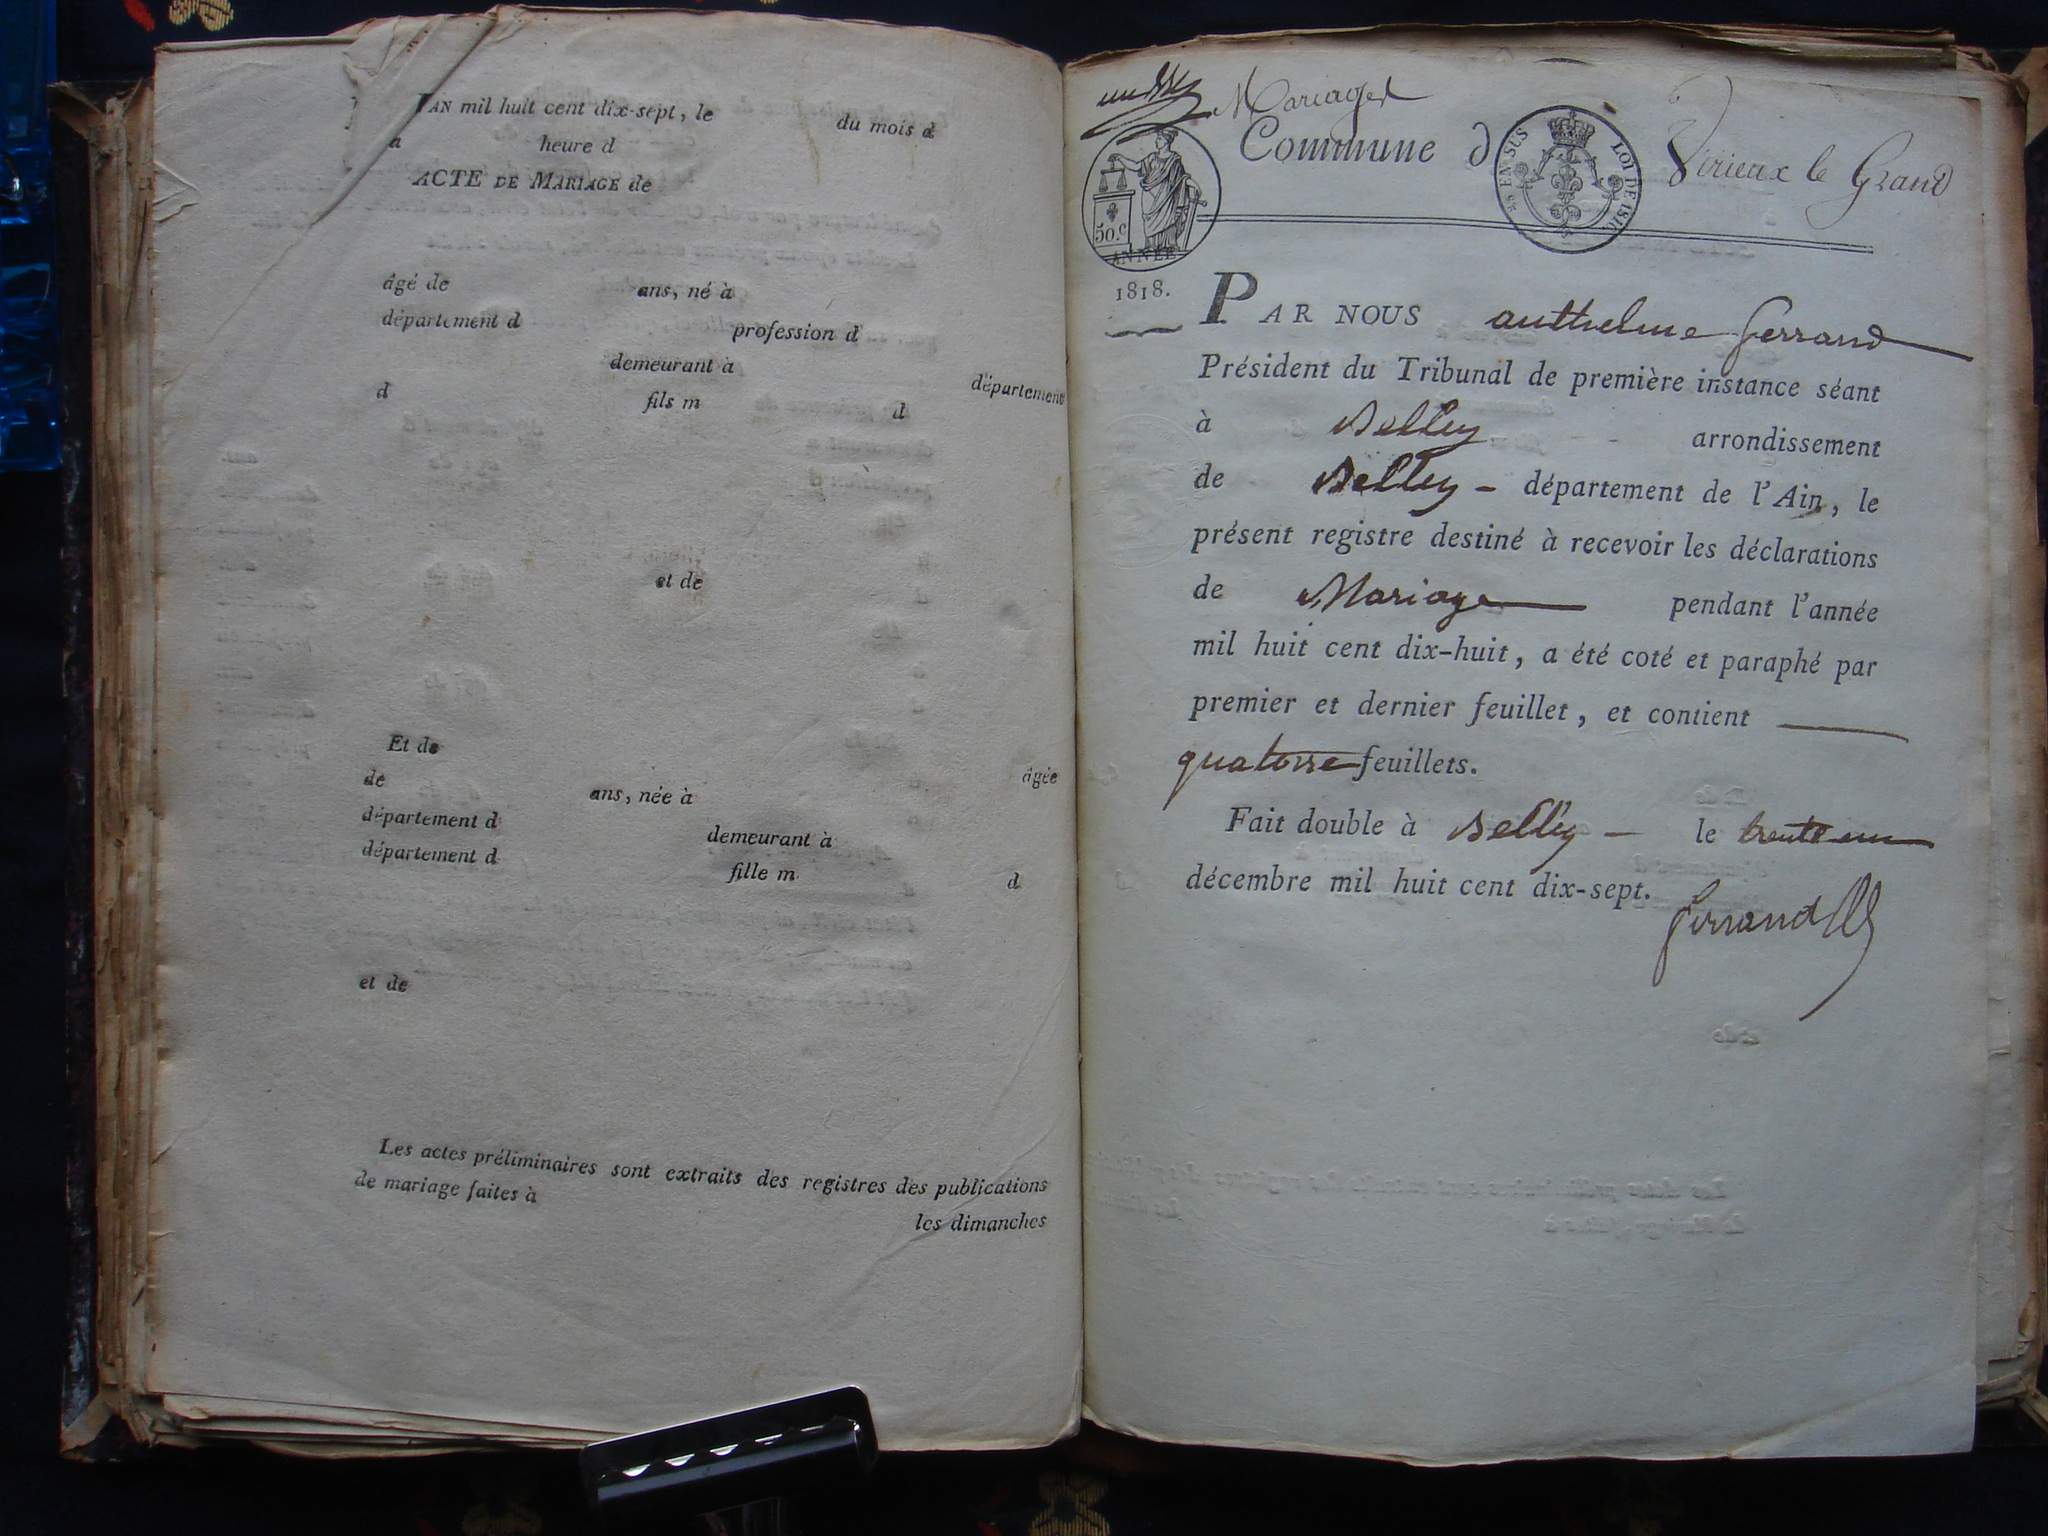 L'AN mil huit cent dix-sept, le du mois d
à heure d
ACTE DE MARIAGE de
âgé de ans, né à
département d profession d
demeurant à département
d fils m d
et de
Et de âgée
de ans, née à
département d demeurant à
département d fille m d
et de
Les actes préliminaires sont extraits des registres des publications
de mariage faites à les dimanches
un
Mariages
Commune d Virieux le Grand
50.c
ANNÉE
1818.
25 EN SUS
LOI DE 1816
PAR NOUS anthelme ferrand
Président du Tribunal de première instance séant
à Belley arrondissement
de Belley – département de l'Ain, le
présent registre destiné à recevoir les déclarations
de Mariage pendant l'année
mil huit cent dix-huit, a été coté et paraphé par
premier et dernier feuillet, et contient
quatorze feuillets.
Fait double à Belley – le trente un
décembre mil huit cent dix-sept.
ferrand